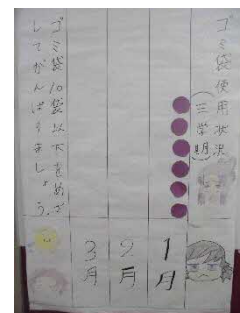 ゴミ袋使用状況
(三学期)
1月
2月
3月
ゴミ袋10袋以下をめざ
してがんばりましょう。